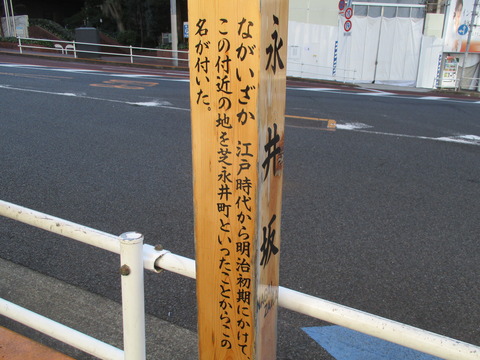 永井坂
ながいざか 江戸時代から明治初期にかけて、
この付近の地を芝永井町といったことからこの
名が付いた。